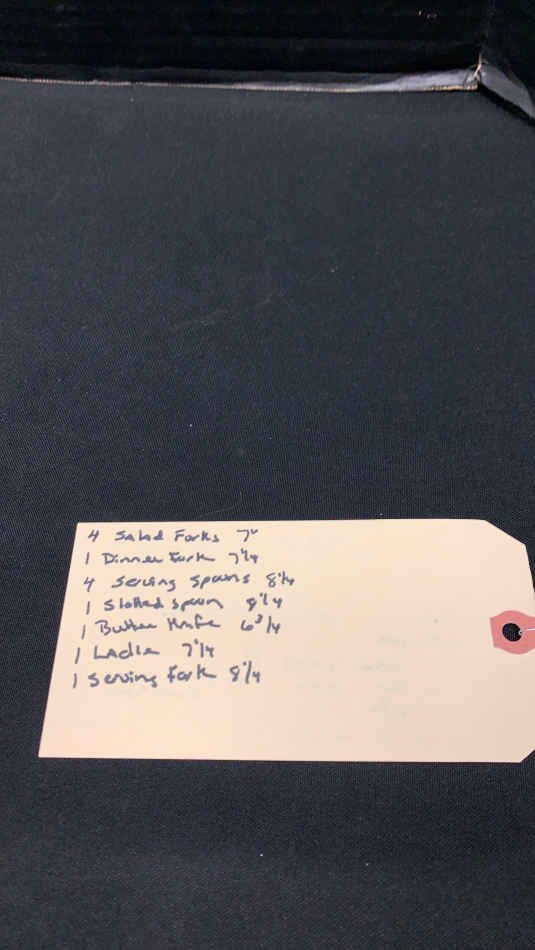 4 Salad Forks 7"
1 Dinner Fork 7 1/4
4 Serving Spoons 8 1/4
1 Slotted Spoon 8 1/4
1 Butter Knife 6 3/4
1 Ladle 7 1/4
1 Serving Fork 8 1/4